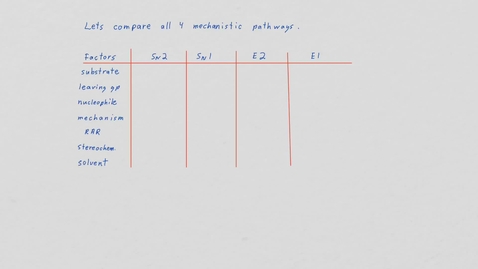 Lets compare all 4 mechanistic pathways.
Factors SN2 SN1 E2 E1
substrate
leaving gp
nucleophile
mechanism
RAR
stereochem.
solvent